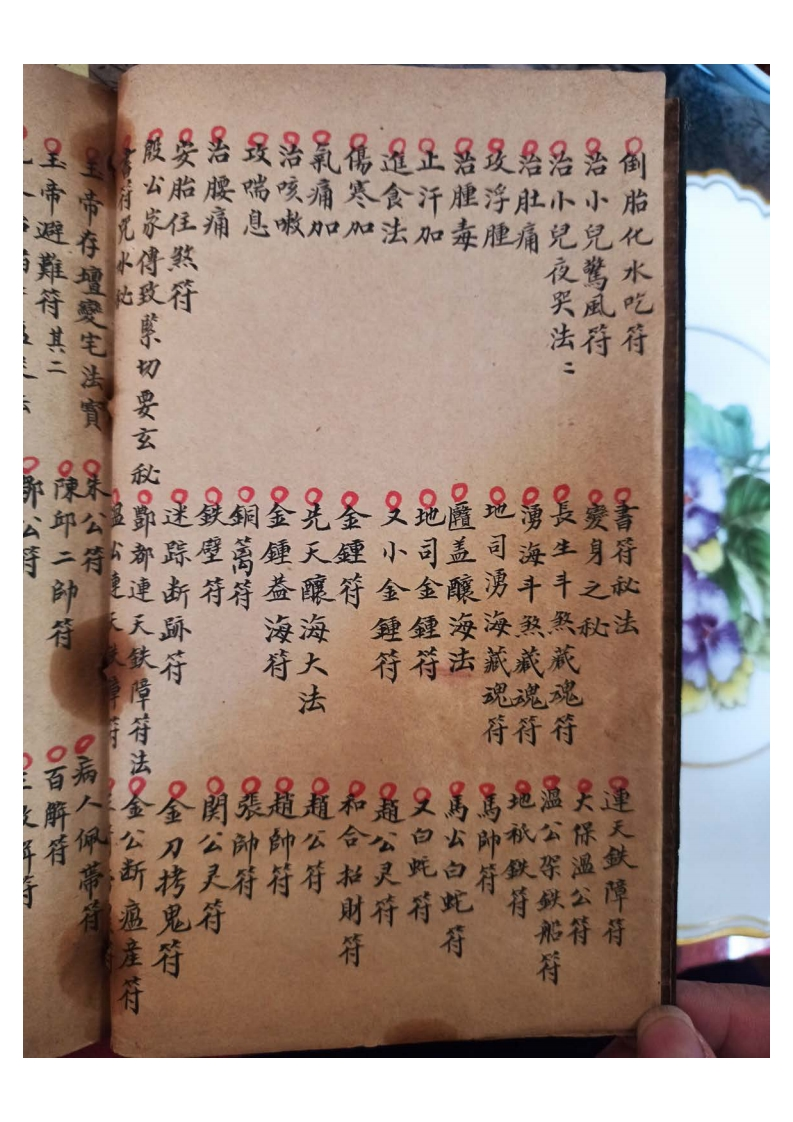 倒胎化水吃符
治小兒驚風符
治小兒夜哭法二
治肚痛
攻浮腫
治腫毒
止汗加
進食法
傷寒加
氣痛加
治咳嗽
攻喘息
治腰痛
安胎住煞符
殷公家傳致緊切要玄秘
書符咒水
書符秘法
變身之秘
長生斗煞藏魂符
湧海斗煞藏魂符
地司湧海藏魂符
蓋釀海法
地司金鍾符
又小金鍾符
金鍾符
先天釀海大法
金鍾益海符
銅篱符
鉄壁符
迷踪断跡符
酆都連天鉄障符法
温公連天鉄障符
連天鉄障符
大保溫公符
溫公架鉄船符
地祇鉄符
馬帥符
馬公白蛇符
又白蛇符
趙公灵符
和合招財符
趙公符
趙帥符
張帥符
関公灵符
金刀拷鬼符
金公断瘟産符
玉帝存壇變宅法寶
玉帝避難符其二
朱公符
陳邱二帥符
鄧公符
病人佩蒂符
百解符